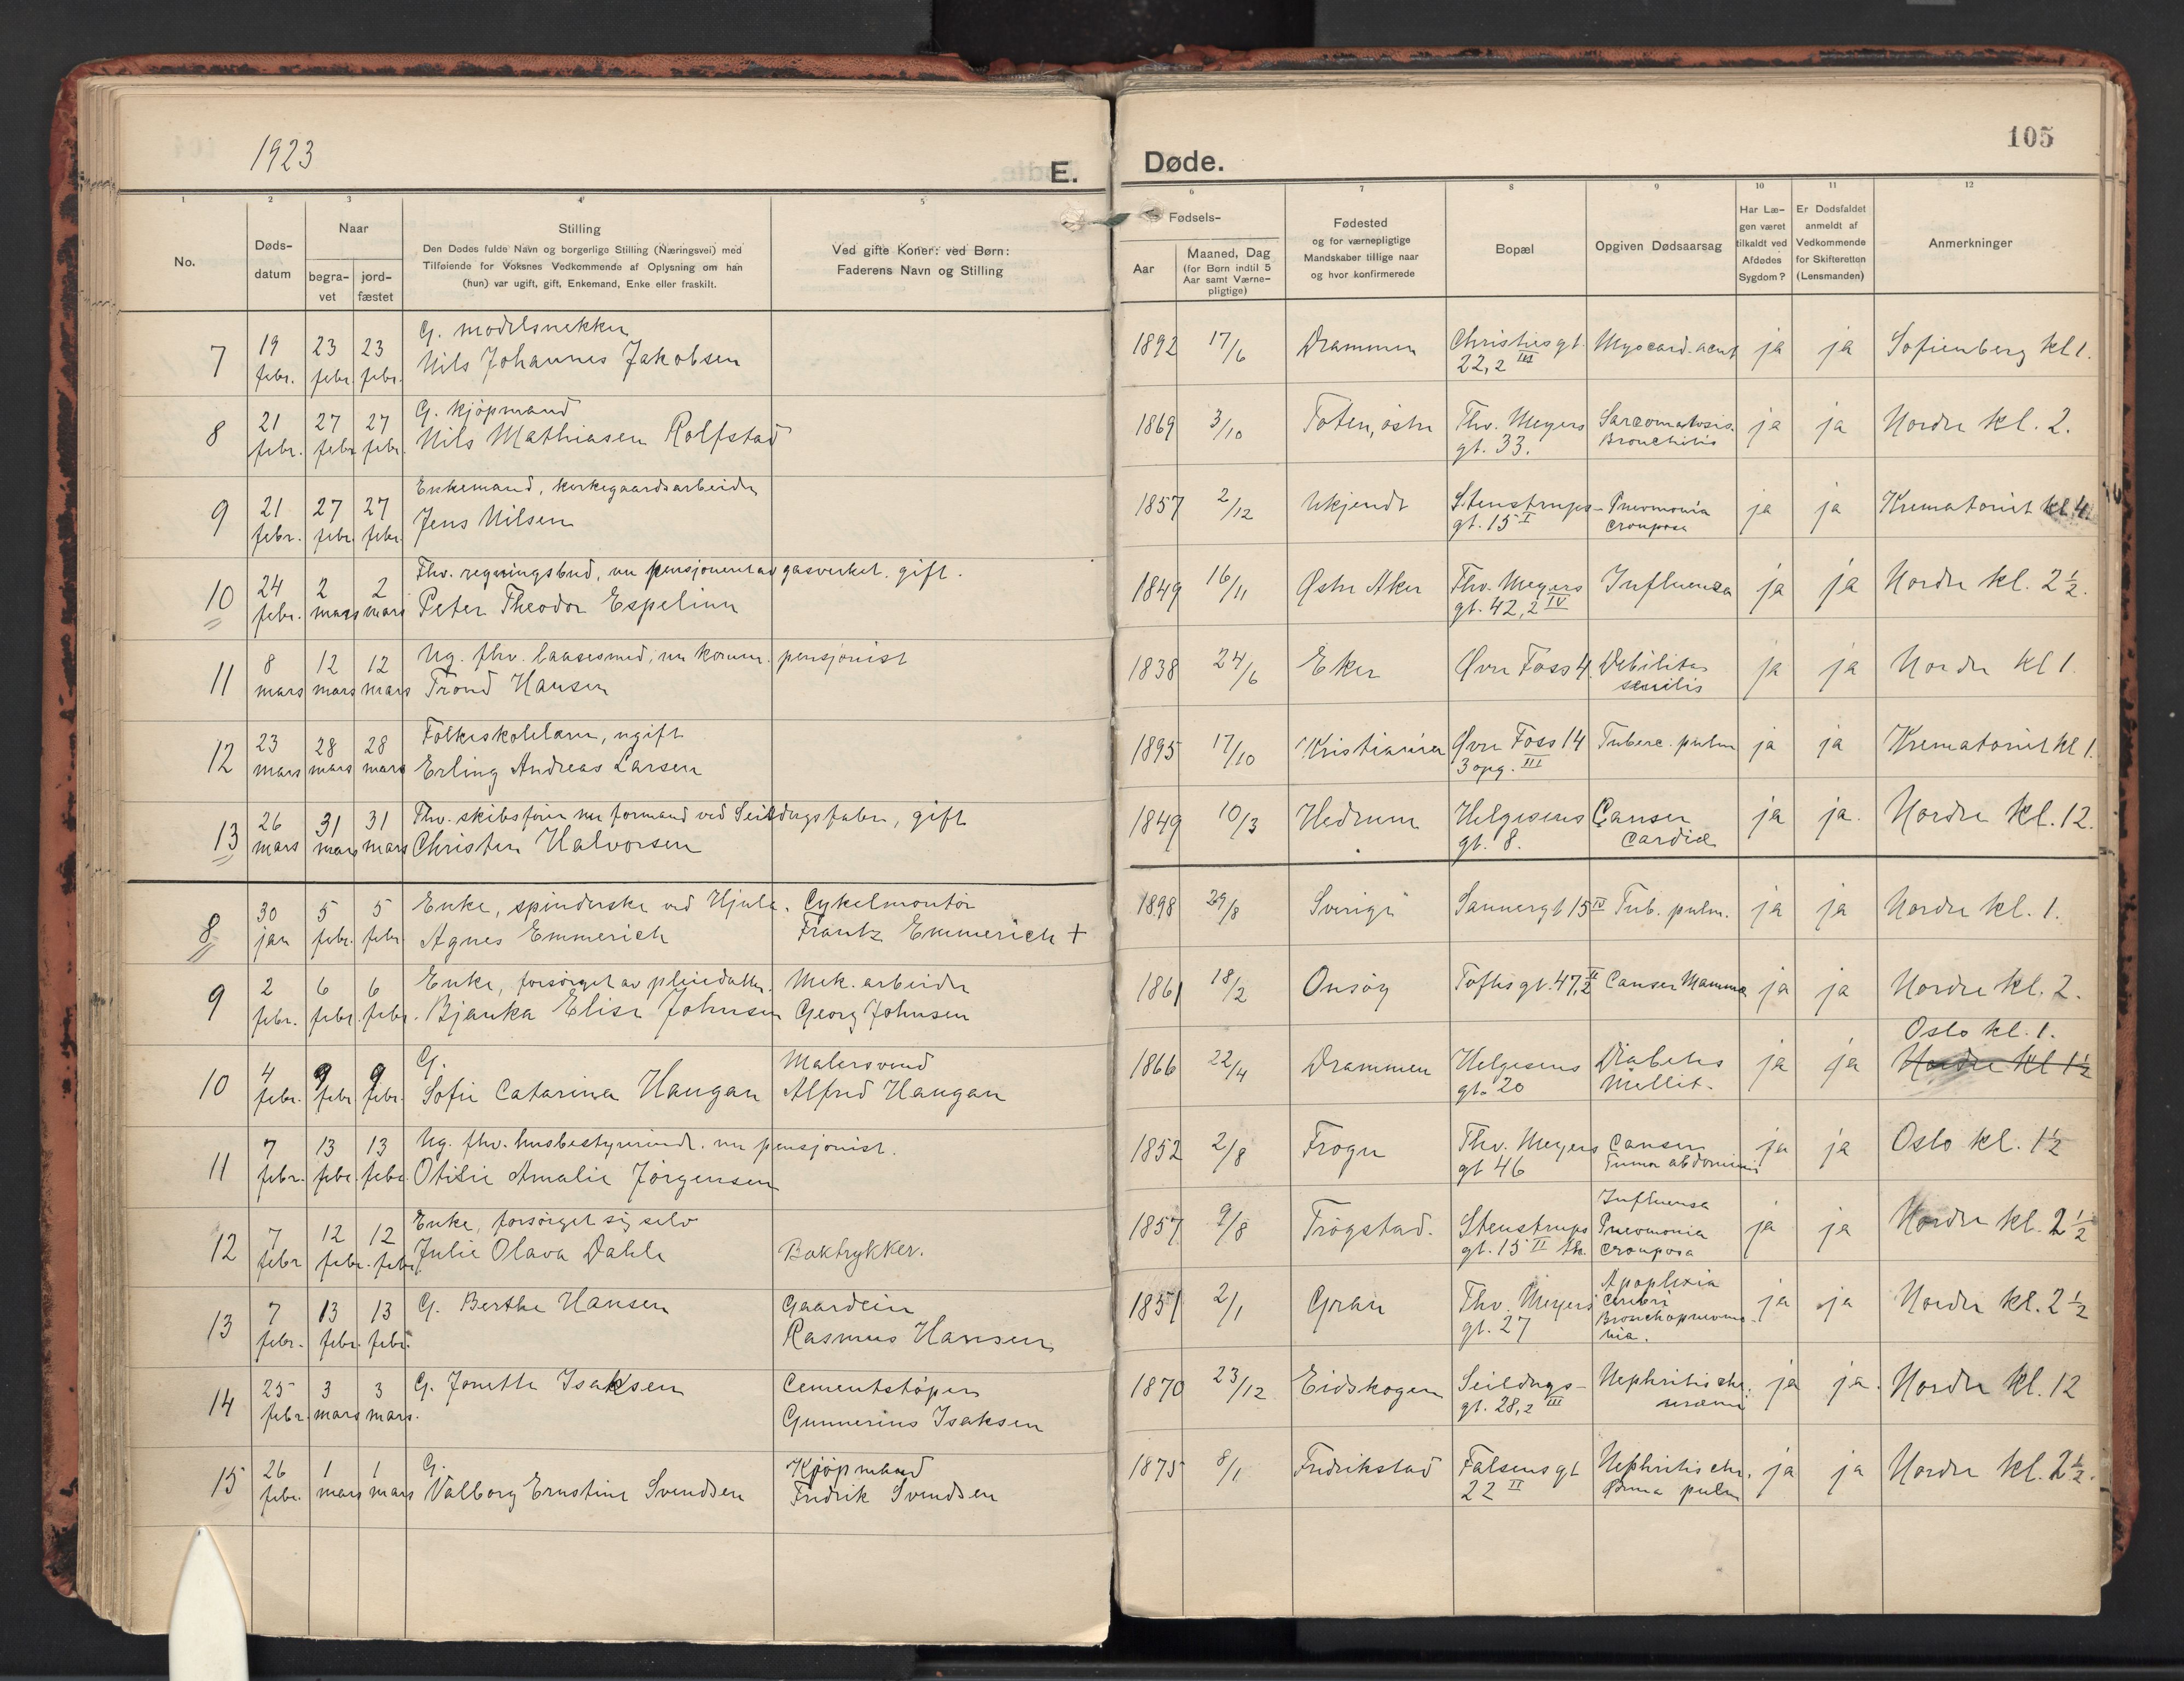 1923
E.
Døde.
105
1
2
3
4
5
6
7
8
9
10
11
12
No.
Døds-
datum
Naar
begra-
vet
jord-
fæstet
Stilling
Den Dødes fulde Navn og borgerlige Stilling (Næringsvei) med
Tilføiende for Voksnes Vedkommende af Oplysning om han
(hun) var ugift, gift, Enkemand, Enke eller fraskilt.
Ved gifte Koner: ved Børn:
Faderens Navn og Stilling
Fødsels-
Aar
Maaned, Dag
(for Børn indtil 5
Aar samt Værne-
pligtige)
Fødested
og for værnepligtige
Mandskaber tillige naar
og hvor konfirmerede
Bopæl
Opgiven Dødsaarsag
Har Læ-
gen været
tilkaldt ved
Afdødes
Sygdom?
Er Dødsfaldet
anmeldt af
Vedkommende
for Skifteretten
(Lensmanden)
Anmerkninger
7
19
febr.
23
febr.
23
febr.
G. modelsnekker
Nils Johannes Jakobsen
1892
17/6
Drammen
Christies gt.
22, 2 III
Myocard. acut
ja
ja
Sofienberg kl 1.
8
21
febr.
27
febr
27
febr.
G. kjøpmand
Nils Mathiasen Rolfstad
1869
3/10
Toten, østre
Thv. Meyers
gt. 33.
Sarcomatosis.
Bronchitis
ja
ja
Nordre kl. 2.
9
21
febr.
27
febr.
27
febr.
Enkemand, kirkegaardsarbeider
Jens Nilsen
1857
2/12
Ukjendt
Stenstrups-
gt. 15 I
Pneumonia
crouposa
ja
ja
Krematoriet kl. 4.
10
24
febr.
2
mars
2
mars
Fhv. regningsbud, nu pensjonert av gasverket. gift.
Peter Theodor Espelinn
1849
16/11
Østre Aker
Thv. Meyers
gt. 42, 2 IV
Influenza
ja
ja
Nordre kl. 2 ½.
11
8
mars
12
mars
12
mars
Ug. fhv. laasesmed, nu komm. pensjonist
Trond Hansen
1838
24/6
Eker
Øvre Foss 4.
Debilitas
senilis
ja
ja
Nordre kl 1.
12
23
mars
28
mars
28
mars
Folkeskolelærer, ugift
Erling Andreas Larsen
1895
17/10
Kristiania
Øvre Foss 14
3 opg. III
Tuberc. pulm
ja
ja
Krematoriet kl 1.
13
26
mars
31
mars
31
mars
Fhv. skibsfører nu formand ved Seildugsfabr, gift
Christen Halvorsen
1849
10/3
Hedrum
Helgesens
gt. 8.
Cancer
Cardiæ
ja
ja.
Nordre kl. 12.
8
30
jan
5
febr.
5
febr
Enke, spinderske ved Hjula.
Agnes Emmerich
Cykelmontør
Frantz Emmerich +
1898
29/8
Sverige
Sannergt 15 IV
Tub. pulm.
ja
ja
Nordre kl. 1.
9
2
febr.
6
febr.
6
febr.
Enke, forsørget av pleiedatter.
Bjanka Elise Johnsen
Mek. arbeider
Georg Johnsen
1861
18/2
Onsøy
Toftes gt. 47, 2 II
Cancer Mamma
ja
ja
Nordre kl. 2.
10
4
febr.
9
febr
9
febr.
G.
Sofie Catarina Haugan
Malersvend
Alfred Haugan
1866
22/4
Drammen
Helgesens
gt. 20
Diabetes
Mellit.
ja
ja
Oslo kl. 1.
Nordre kl 1½
11
7
febr.
13
febr.
13
febr.
Ug. fhv. husbestyrerinde. nu pensjonist.
Otilie Amalie Jørgensen
1852
2/8
Frogn
Thv. Meyers
gt 46
Cancer
Tumor abdominis
ja
ja
Oslo kl. 1½
12
7
febr
12
febr.
12
febr
Enke, forsørget sig selv
Julie Olava Dahle
Boktrykker.
1857
9/8
Trøgstad.
Stenstrups
gt. 15 II th.
Influensa
Pneumonia
crouposa
ja
ja
Nordre kl. 2 ½
13
7
febr.
13
febr.
13
febr.
G. Berthe Hansen
Gaardeier
Rasmus Hansen
1851
2/1
Gran
Thv. Meyers
gt. 27
Apoplexia
cerebri
Bronchopneumo-
nia.
ja
ja
Nordre kl. 2 ½
14
25
febr.
3
mars
3
mars.
G. Jonette Isaksen
Cementstøper
Gunnerius Isaksen
1870
23/12
Eidskogen
Seildugs-
gt. 28, 2 III
Nephritis chr.
uræmi
ja
ja.
Nordre kl. 12
15
26
febr.
1
mars
1
mars
G.
Valborg Ernstine Svendsen
Kjøpmand
Fredrik Svendsen
1875
8/1
Fredrikstad
Falsens gt
22 II
Nephritis chr.
pulm
ja
ja
Nordre kl. 2½.